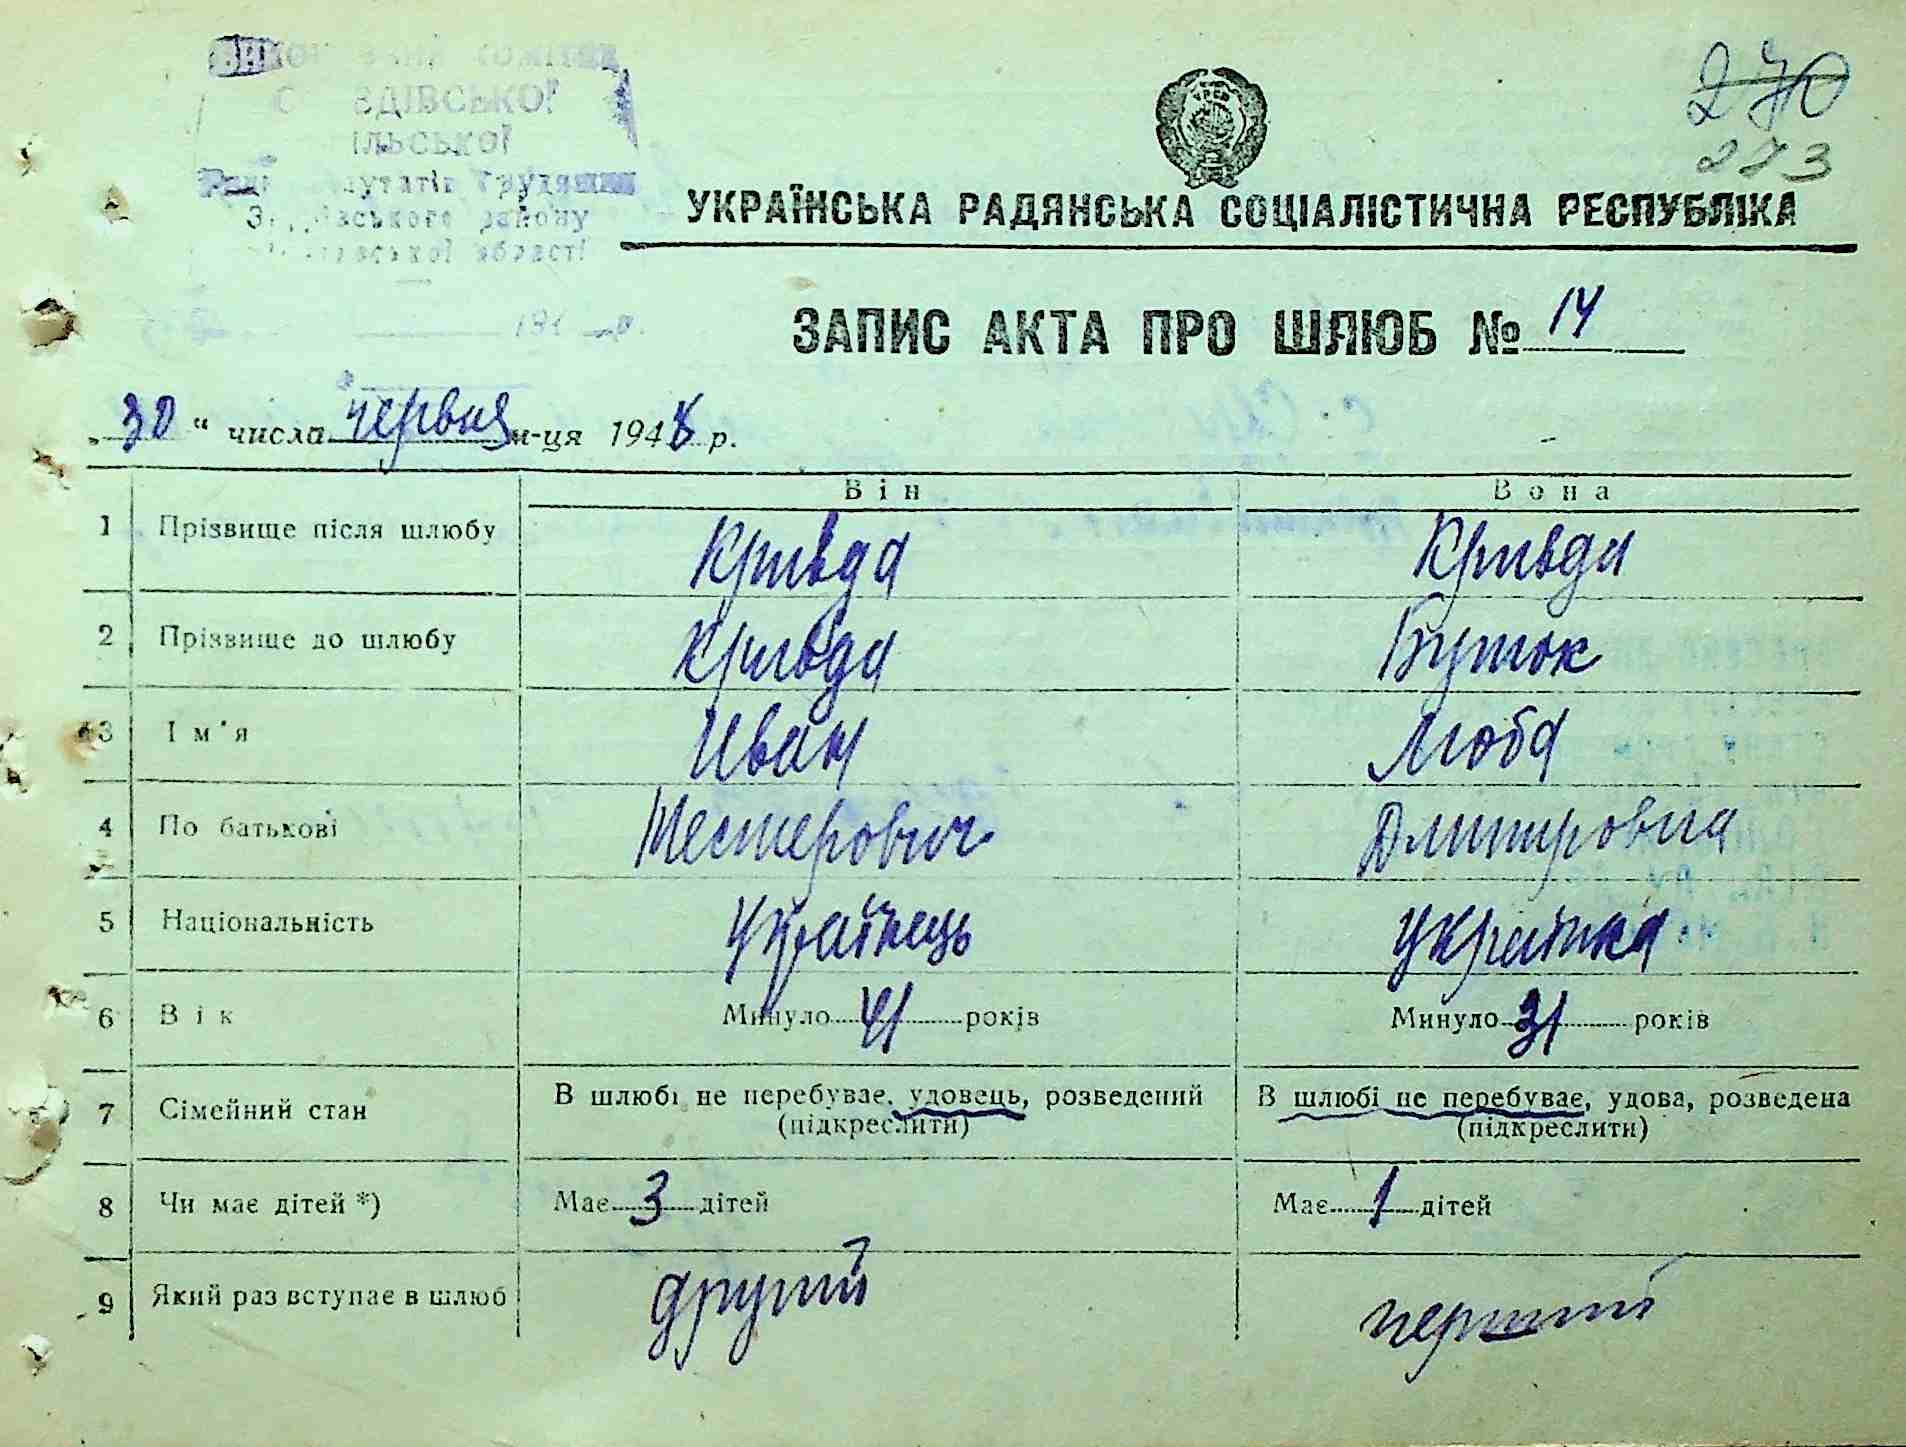 комітет
ЗДІВСЬКОЇ
ІЛЬСЬКОЇ
утатів трудящих
ського району
ської області
270
273
УРСР
УКРАЇНСЬКА РАДЯНСЬКА СОЦІАЛІСТИЧНА РЕСПУБЛІКА
ЗАПИС АКТА ПРО ШЛЮБ № 14
„30“ числа червня м-ця 1948 р.
Він Вона
1 Прізвище після шлюбу Кривда Кривда
2 Прізвище до шлюбу Кривда Буток
3 Ім'я Иван Люба
4 По батькові Нестерович Дмитровна
5 Національність Українець Українка
6 Вік Минуло 41 років Минуло 31 років
7 Сімейний стан В шлюбі не перебуває, удовець, розведений (підкреслити) В шлюбі не перебуває, удова, розведена (підкреслити)
8 Чи має дітей *) Має 3 дітей Має 1 дітей
9 Який раз вступає в шлюб другий перший